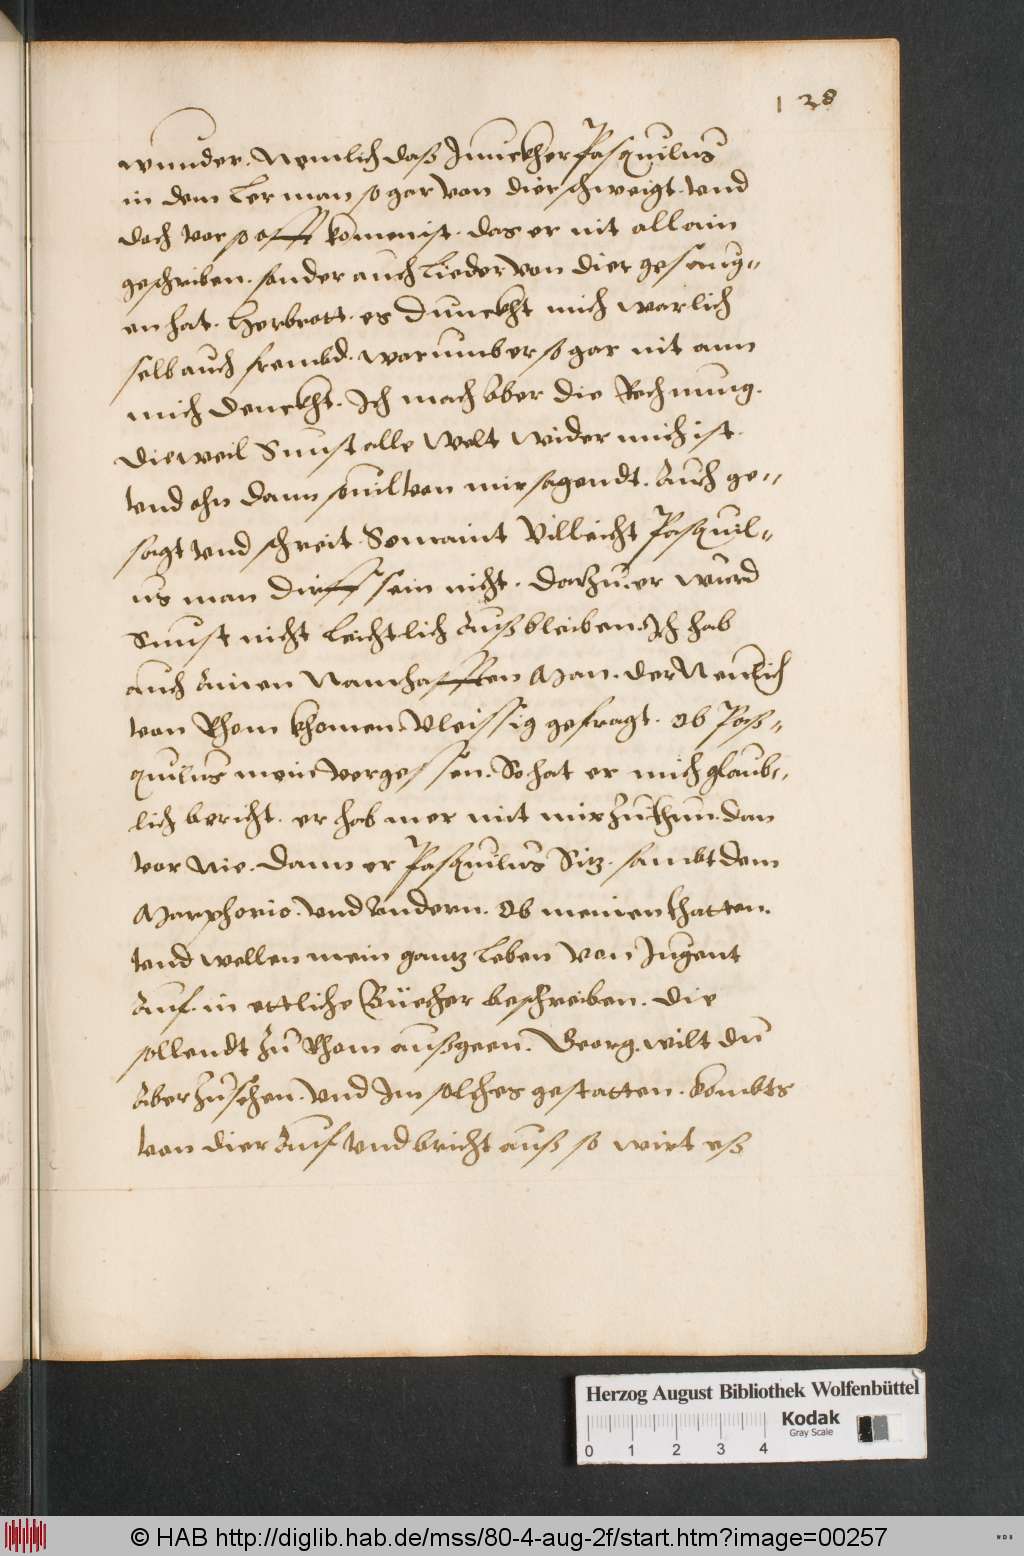 128
wunder. Nemlich daß Junckher Pasquilus
in dem Lerman so gar von dier schweigt. vnd
doch vor so offt komen ist. das er nit allain
geschriben. sonder auch Lieder von dier gesoung"
en hat. Herbrott. es Dunckht mich warlich
selb auch frembd. warumb er so gar nit ann
mich denckht. Ich mach aber die Rechnung.
dieweil Sunst alle welt wider mich ist.
vnd ohn dann souil von mir sagendt. Auch ge"
sagt vnd schreit. So maint Villeicht Pasquil"
us man dirff sein nicht. darzu. er wurd
Sunst nicht leichtlich Ausbleiben. Ich hab
auch Ainen Namhafften Man. der Neulich
von Rhom khomen. Vleissig gefragt. Ob Pas"
quilus mein vergessen. So hat er mich glaub"
lich bericht. er hab mer mit mir zu thun. dan
vor nie. Dann er Pasquilus Sitz. sambt dem
Marphorio. vnd Andern. Ob meinen thatten.
vnd wellen mein gantz leben von Jugent
Auf. in ettliche Büecher beschreiben. die
sollendt zu Rhom außgeen. Georg. wilt du
Aber zusehen. vnd Im solches gestatten. kombts
von dier Auf vnd bricht auß so wirt eß
Herzog August Bibliothek Wolfenbüttel
Kodak
Gray Scale
0 1 2 3 4
© HAB http://diglib.hab.de/mss/80-4-aug-2f/start.htm?image=00257